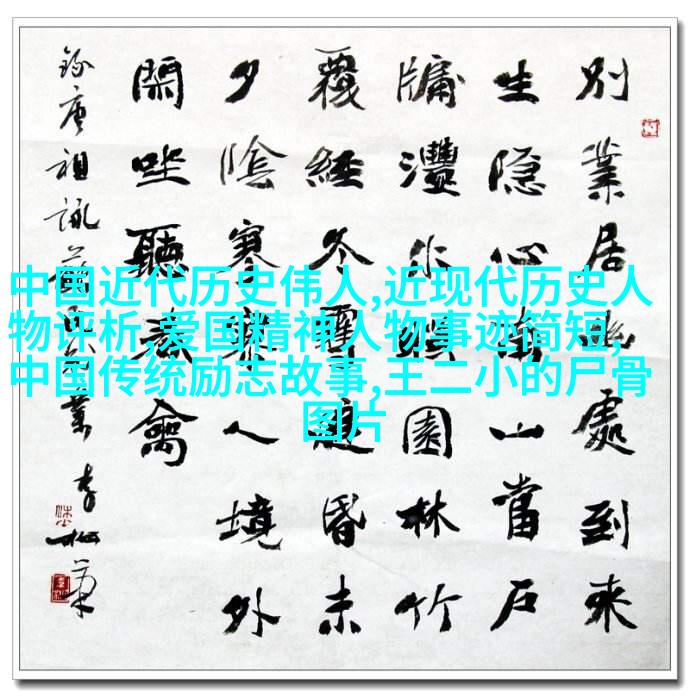 别業居幽處到來
生隐心南山當戶
牖灃水映園林竹
覆經冬雪庭昏未
夕陰寥寥人境外
閑坐聽春禽
錄唐祖詠蘇氏别業
中国近代历史伟人,近现代历史人
物评析,爱国精神人物事迹简短,
中国传统励志故事,王二小的尸骨
图片